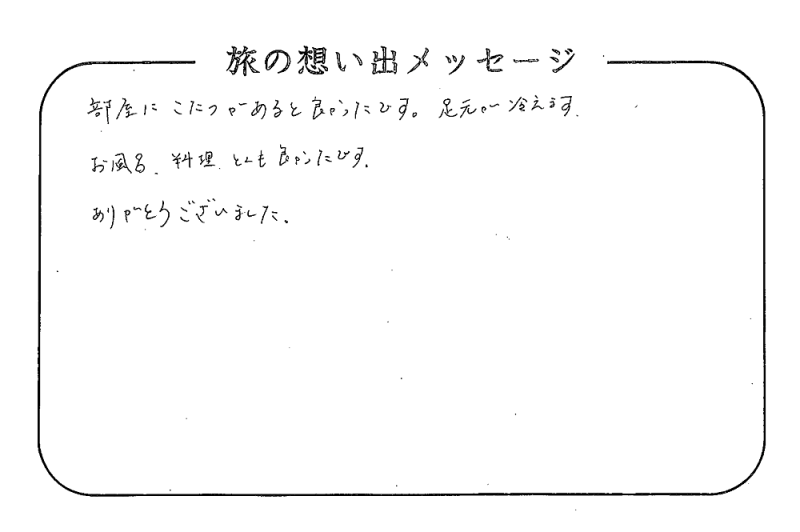 旅の想い出メッセージ
部屋にこたつがあると良かったです。足元が冷えます.
お風呂、料理、とても良かったです.
ありがとうございました.